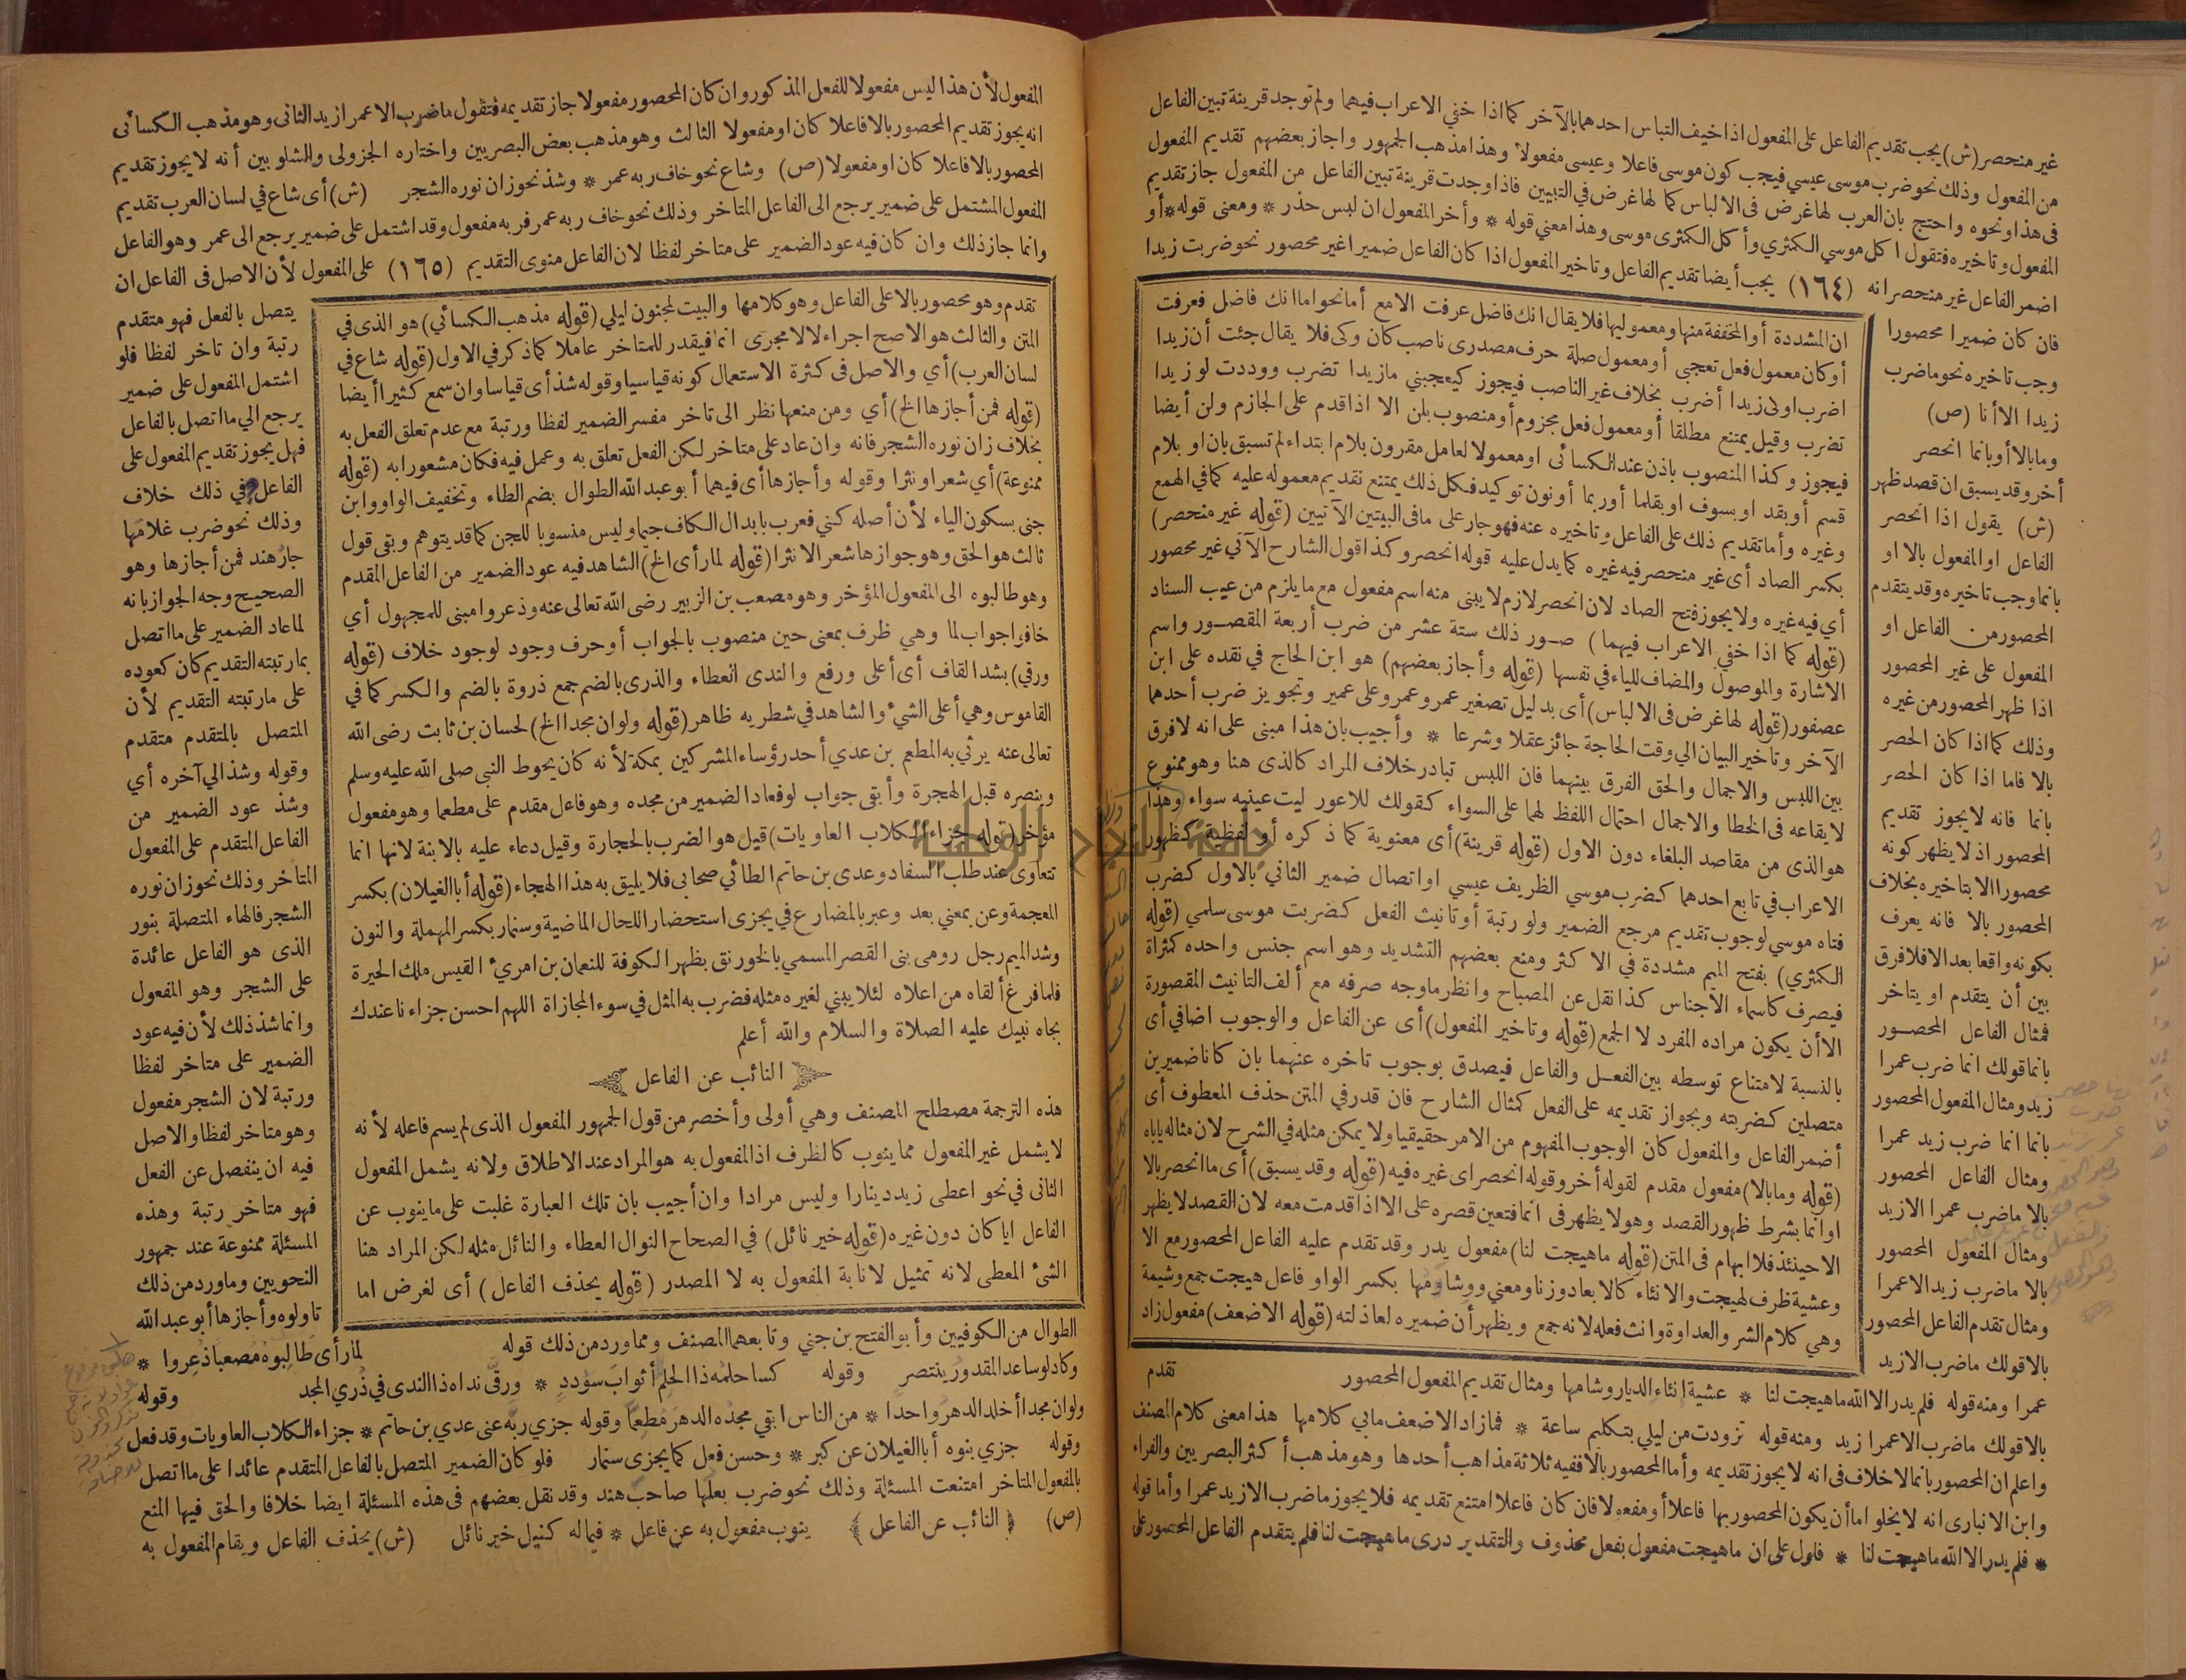 غير منحصر (ش) يجب تقديم الفاعل على المفعول اذا خيف التباس احدهما بالآخر كما اذا خفي الاعراب فيهما ولم توجد قرينة تبين الفاعل
من المفعول وذلك نحو ضرب موسى عيسي فيجب كون موسى فاعلا وعيسى مفعولا وهذا مذهب الجمهور واجاز بعضهم تقديم المفعول
فى هذا ونحوه واحتج بان العرب لها غرض فى الالباس كما لها غرض في التبيين فاذا وجدت قرينة تبين الفاعل من المفعول جاز تقديم
المفعول وتاخيره فتقول اكل موسي الكمثري وأكل الكمثرى موسى وهذا معني قوله * وأخر المفعول ان لبس حذر * ومعنى قوله * أو
اضمر الفاعل غير منحصر انه (١٦٤) يجب أيضا تقديم الفاعل وتاخير المفعول اذا كان الفاعل ضميرا غير محصور نحو ضربت زيدا
فان كان ضميرا محصورا
وجب تاخيره نحو ماضرب
زيدا الا أنا (ص)
وما بالا أو بانما انحصر
أخر وقد يسبق ان قصد ظهر
(ش) يقول اذا انحصر
الفاعل او المفعول بالا او
بانما وجب تاخيره وقد يتقدم
المحصور من الفاعل او
المفعول على غير المحصور
اذا ظهر المحصور من غيره
وذلك كما اذا كان الحصر
بالا فاما اذا كان الحصر
بانما فانه لا يجوز تقديم
المحصور اذ لا يظهر كونه
محصورا الا بتاخيره بخلاف
المحصور بالا فانه يعرف
بكونه واقعا بعد الا فلا فرق
بين أن يتقدم او يتاخر
فمثال الفاعل المحصور
بانما قولك انما ضرب عمرا
زيد ومثال المفعول المحصور
بانما انما ضرب زيد عمرا
ومثال الفاعل المحصور
بالا ماضرب عمرا الا زيد
ومثال المفعول المحصور
بالا ماضرب زيد الا عمرا
ومثال تقدم الفاعل المحصور
بالا قولك ماضرب الا زيد
ان المشددة أو المخففة منها ومعموليها فلا يقال انك فاضل عرفت الا مع أما نحو اما انك فاضل فعرفت
أو كان معمول فعل تعجبى أو معمول صلة حرف مصدرى ناصب كان وكى فلا يقال جئت أن زيدا
اضرب اولى زيدا أضرب بخلاف غير الناصب فيجوز كيعجبني مازيدا تضرب ووددت لو زيدا
تضرب وقيل يمتنع مطلقا أو معمول فعل مجزوم أو منصوب بلن الا اذا قدم على الجازم ولن أيضا
فيجوز وكذا المنصوب باذن عند الكسائى او معمولا لعامل مقرون بلام ابتداء لم تسبق بان او بلام
قسم أو بقد او بسوف او بقلما أو ربما أو نون توكيد فكل ذلك يمتنع تقديم معموله عليه كما فى الهمع
وغيره وأما تقديم ذلك على الفاعل وتاخيره عنه فهو جار على مافى البيتين الآتيين (قوله غير منحصر)
بكسر الصاد أى غير منحصر فيه غيره كما يدل عليه قوله انحصر وكذا قول الشارح الآتي غير محصور
أي فيه غيره ولا يجوز فتح الصاد لان انحصر لازم لا يبنى منه اسم مفعول مع ما يلزم من عيب السناد
(قوله كما اذا خفي الاعراب فيهما) صور ذلك ستة عشر من ضرب أربعة المقصور واسم
الاشارة والموصول والمضاف للياء في نفسها (قوله وأجاز بعضهم) هو ابن الحاج في نقده على ابن
عصفور (قوله لها غرض فى الالباس) أى بدليل تصغير عمر وعمرو على عمير وتجويز ضرب أحدهما
الآخر وتاخير البيان الي وقت الحاجة جائز عقلا وشرعا * وأجيب بان هذا مبنى على انه لا فرق
بين اللبس والاجمال والحق الفرق بينهما فان اللبس تبادر خلاف المراد كالذى هنا وهو ممنوع
لايقاعه فى الخطا والاجمال احتمال اللفظ لهما على السواء كقولك للاعور ليت عينيه سواء وهذا
هو الذى من مقاصد البلغاء دون الاول (قوله قرينة) أى معنوية كما ذكره أو لفظية كظهور
الاعراب في تابع احدهما كضرب موسي الظريف عيسي او اتصال ضمير الثاني بالاول كضرب
فتاه موسي لوجوب تقديم مرجع الضمير ولو رتبة أو تانيث الفعل كضربت موسى سلمي (قوله
الكمثري) بفتح الميم مشددة في الاكثر ومنع بعضهم التشديد وهو اسم جنس واحده كمثراة
فيصرف كاسماء الاجناس كذا نقل عن المصباح وانظر ماوجه صرفه مع ألف التانيث المقصورة
الا أن يكون مراده المفرد لا الجمع (قوله وتاخير المفعول) أى عن الفاعل والوجوب اضافي أى
بالنسبة لامتناع توسطه بين الفعل والفاعل فيصدق بوجوب تاخره عنهما بان كانا ضميرين
متصلين كضربته وبجواز تقديمه على الفعل كمثال الشارح فان قدر في المتن حذف المعطوف أى
أضمر الفاعل والمفعول كان الوجوب المفهوم من الامر حقيقيا ولا يمكن مثله في الشرح لان مثاله ياباه
(قوله وما بالا) مفعول مقدم لقوله أخر وقوله انحصر اى غيره فيه (قوله وقد يسبق) أى ما انحصر بالا
او انما بشرط ظهور القصد وهو لا يظهر فى انما فتعين قصره على الا اذا قدمت معه لان القصد لا يظهر
الا حينئذ فلا ابهام فى المتن (قوله ماهيجت لنا) مفعول يدر وقد تقدم عليه الفاعل المحصور مع الا
وعشية ظرف لهيجت والانئاء كالابعاد وزنا ومعني ووشامها بكسر الواو فاعل هيجت جمع وشيمة
وهي كلام الشر والعداوة وانث فعله لانه جمع ويظهر أن ضميره لعاذلته (قوله الا ضعف) مفعول زاد
تقدم
عمرا ومنه قوله فلم يدر الا الله ماهيجت لنا * عشية إنئاء الديار وشامها ومثال تقديم المفعول المحصور
بالا قولك ماضرب الا عمرا زيد ومنه قوله تزودت من ليلي بتكليم ساعة * فمازاد الا ضعف مابي كلامها هذا معنى كلام المصنف
واعلم ان المحصور بانما لا خلاف فى انه لا يجوز تقديمه وأما المحصور بالا ففيه ثلاثة مذاهب أحدها وهو مذهب أكثر البصريين والفراء
وابن الانبارى انه لا يخلو اما أن يكون المحصور بها فاعلا أو مفعولا فان كان فاعلا امتنع تقديمه فلا يجوز ماضرب الا زيد عمرا وأما قوله
* فلم يدر الا الله ماهيجت لنا * فاول على ان ماهيجت مفعول بفعل محذوف والتقدير درى ماهيجت لنا فلم يتقدم الفاعل المحصور على
المفعول لأن هذا ليس مفعولا للفعل المذكور وان كان المحصور مفعولا جاز تقديمه فتقول ماضرب الا عمرا زيد الثانى وهو مذهب الكسائى
انه يجوز تقديم المحصور بالا فاعلا كان او مفعولا الثالث وهو مذهب بعض البصريين واختاره الجزولى والشلوبين أنه لا يجوز تقديم
المحصور بالا فاعلا كان او مفعولا (ص) وشاع نحو خاف ربه عمر * وشذ نحو زان نوره الشجر (ش) أى شاع في لسان العرب تقديم
المفعول المشتمل على ضمير يرجع الى الفاعل المتاخر وذلك نحو خاف ربه عمر فربه مفعول وقد اشتمل على ضمير يرجع الى عمر وهو الفاعل
وانما جاز ذلك وان كان فيه عود الضمير على متاخر لفظا لان الفاعل منوى التقديم (١٦٥) على المفعول لأن الاصل فى الفاعل ان
يتصل بالفعل فهو متقدم
رتبة وان تاخر لفظا فلو
اشتمل المفعول على ضمير
يرجع الي ما اتصل بالفاعل
فهل يجوز تقديم المفعول على
الفاعل في ذلك خلاف
وذلك نحو ضرب غلامها
جار هند فمن أجازها وهو
الصحيح وجه الجواز بانه
لما عاد الضمير على ما اتصل
بما رتبته التقديم كان كعوده
على ما رتبته التقديم لأن
المتصل بالمتقدم متقدم
وقوله وشذ الي آخره أي
وشذ عود الضمير من
الفاعل المتقدم على المفعول
المتاخر وذلك نحو زان نوره
الشجر فالهاء المتصلة بنور
الذى هو الفاعل عائدة
على الشجر وهو المفعول
وانما شذ ذلك لأن فيه عود
الضمير على متاخر لفظا
ورتبة لان الشجر مفعول
وهو متاخر لفظا والاصل
فيه ان ينفصل عن الفعل
فهو متاخر رتبة وهذه
المسئلة ممنوعة عند جمهور
النحويين وماورد من ذلك
تاولوه وأجازها أبو عبد الله
تقدم وهو محصور بالا على الفاعل وهو كلامها والبيت لمجنون ليلي (قوله مذهب الكسائي) هو الذى في
المتن والثالث هو الاصح اجراء لالا مجرى انما فيقدر للمتاخر عاملا كما ذكر في الاول (قوله شاع في
لسان العرب) أي والاصل فى كثرة الاستعمال كونه قياسيا وقوله شذ أى قياسا وان سمع كثيرا أيضا
(قوله فمن أجازها الخ) أي ومن منعها نظر الى تاخر مفسر الضمير لفظا ورتبة مع عدم تعلق الفعل به
بخلاف زان نوره الشجر فانه وان عاد على متاخر لكن الفعل تعلق به وعمل فيه فكان مشعورا به (قوله
ممنوعة) أي شعرا ونثرا وقوله وأجازها أى فيهما أبو عبد الله الطوال بضم الطاء وتخفيف الواو وابن
جنى بسكون الياء لأن أصله كني فعرب بابدال الكاف جيما وليس منسوبا للجن كما قد يتوهم وبقى قول
ثالث هو الحق وهو جوازها شعرا لا نثرا (قوله لما رأى الخ) الشاهد فيه عود الضمير من الفاعل المقدم
وهو طالبوه الى المفعول المؤخر وهو مصعب بن الزبير رضى الله تعالى عنه وذعروا مبنى للمجهول أي
خافوا جواب لما وهي ظرف بمعنى حين منصوب بالجواب أو حرف وجود لوجود خلاف (قوله
ورقي) بشد القاف أى أعلى ورفع والندى العطاء والذرى بالضم جمع ذروة بالضم والكسر كما في
القاموس وهي أعلى الشئ والشاهد في شطريه ظاهر (قوله ولو ان مجدا الخ) لحسان بن ثابت رضى الله
تعالى عنه يرثي به المطعم بن عدي أحد رؤساء المشركين بمكة لأنه كان يحوط النبى صلى الله عليه وسلم
وينصره قبل الهجرة وأبقى جواب لو فعاد الضمير من مجده وهو فاعل مقدم على مطعما وهو مفعول
مؤخر (قوله جزاء الكلاب العاويات) قيل هو الضرب بالحجارة وقيل دعاء عليه بالابنة لانها انما
تتعاوى عند طلب السفاد وعدى بن حاتم الطائي صحابى فلا يليق به هذا الهجاء (قوله أبا الغيلان) بكسر
المعجمة وعن بمعني بعد وعبر بالمضارع في يجزى استحضار اللحال الماضية وسنمار بكسر المهملة والنون
وشد الميم رجل رومى بنى القصر المسمي بالخورنق بظهر الكوفة للنعمان بن امرئ القيس ملك الحيرة
فلما فرغ ألقاه من اعلاه لئلا يبني لغيره مثله فضرب به المثل في سوء المجازاة اللهم احسن جزاءنا عندك
بجاه نبيك عليه الصلاة والسلام والله أعلم
النائب عن الفاعل
هذه الترجمة مصطلح المصنف وهي أولى وأخصر من قول الجمهور المفعول الذى لم يسم فاعله لأنه
لا يشمل غير المفعول مما ينوب كالظرف اذ المفعول به هو المراد عند الاطلاق ولانه يشمل المفعول
الثانى في نحو اعطى زيد دينارا وليس مرادا وان أجيب بان تلك العبارة غلبت على ماينوب عن
الفاعل ايا كان دون غيره (قوله خير نائل) في الصحاح النوال العطاء والنائل مثله لكن المراد هنا
الشئ المعطى لانه تمثيل لانابة المفعول به لا المصدر (قوله يحذف الفاعل) أى لغرض اما
الطوال من الكوفيين وأبو الفتح بن جني وتابعهما المصنف ومما ورد من ذلك قوله لما رأى طالبوه مصعبا ذعروا *
وكاد لو ساعد المقدور ينتصر وقوله كسا حلمه ذا الحلم أثواب سؤدد * ورقى نداه ذا الندى في ذري المجد وقوله
ولو ان مجدا أخلد الدهر واحدا * من الناس ابقي مجده الدهر مطعما وقوله جزي ربه عنى عدي بن حاتم * جزاء الكلاب العاويات وقد فعل
وقوله جزي بنوه أبا الغيلان عن كبر * وحسن فعل كما يجزى سنمار فلو كان الضمير المتصل بالفاعل المتقدم عائدا على ما اتصل
بالمفعول المتاخر امتنعت المسئلة وذلك نحو ضرب بعلها صاحب هند وقد نقل بعضهم فى هذه المسئلة ايضا خلافا والحق فيها المنع
(ص) ﴿ النائب عن الفاعل ﴾ ينوب مفعول به عن فاعل * فيما له كنيل خير نائل (ش) يحذف الفاعل ويقام المفعول به
جامعة النجاح الوطنية